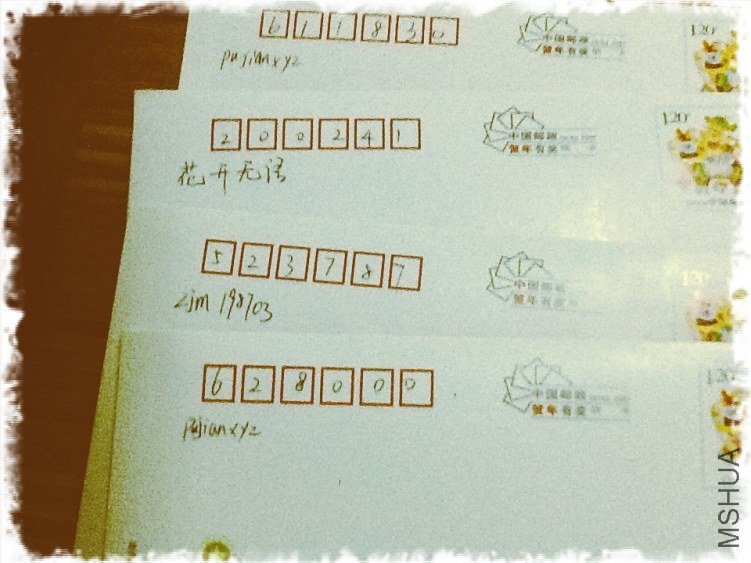 611830
中国邮政
贺年有奖
120
pujianxyz
200241
中国邮政
贺年有奖
120
花开无语
523787
中国邮政
贺年有奖
120
zjm198703
628000
中国邮政
贺年有奖
120
pujianxyz
MSHUA